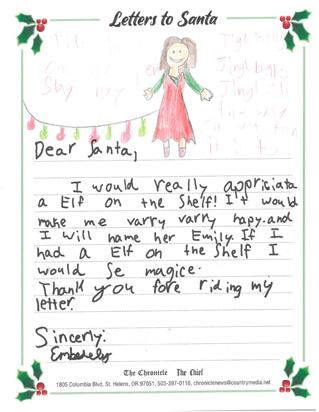 Letters to Santa
Jingl bells
Jingl
Dear Santa,
I would really appriciata
a Elf on the Shelf! I't would
make me varry varry hapy. and
I will name her Emily. If I
had a Elf on the Shelf I
would Se magice.
Thank you fore riding my
letter.
Sincerly:
The Chronicle The Chief
1805 Columbia Blvd, St. Helens, OR 97051, 503-397-0116, chroniclenews@countrymedia.net